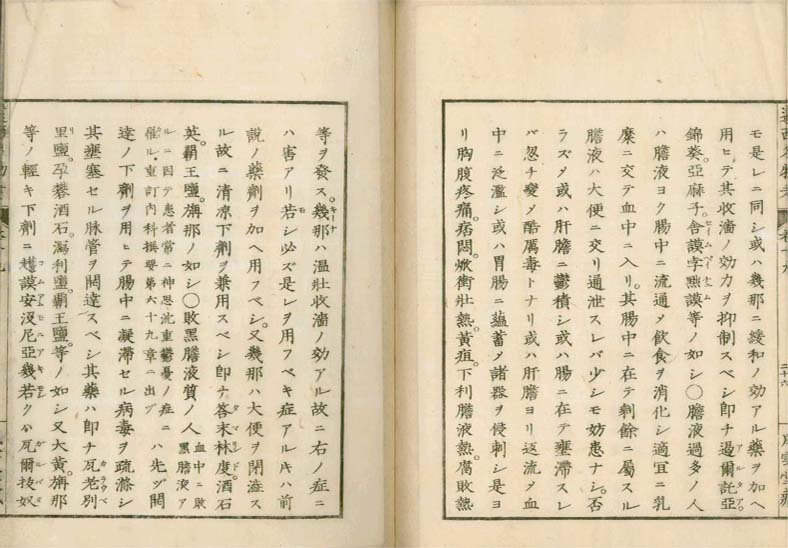 モ是レニ同シ或ハ幾那ニ緩和ノ効アル藥ヲ加ヘ
用ヒテ其收濇ノ効力ヲ抑制スベシ即チ遏爾託亞
錦葵。亞麻子。舎謨孛㷔謨等ノ如シ〇膽液過多ノ人
ハ膽液ヨク腸中ニ流通メ飲食ヲ消化シ適宜ニ乳
糜ニ交テ血中ニ入リ。其腸中ニ在テ剰餘ニ屬スル
膽液ハ大便ニ交リ通泄スレバ少シモ妨患ナシ。否
ラズメ或ハ肝膽ニ鬱積シ或ハ腸ニ在テ壅滯スレ
バ忽チ變メ酷厲毒トナリ或ハ肝膽ヨリ返流メ血
中ニ泛濫シ或ハ胃腸ニ蘊蓄メ諸器ヲ侵刺シ是ヨ
リ胸腹疼痛。痞悶。焮衝壯熱。黄疸。下利膽液熱。腐敗熱
等ヲ發ス。幾那ハ温壯收濇ノ効アル故ニ右ノ症ニ
ハ害アリ若シ必ズ是レヲ用フベキ症アルキハ前
説ノ藥劑ヲ加ヘ用フベシ。又幾那ハ大便ヲ閉澁ス
ル故ニ清凉下劑ヲ兼用スベシ即チ答末林度。酒石
英。覇王鹽。旃那ノ如シ〇敗黒膽液質ノ人
血中ニ敗黒膽液ア
ルニ因テ患者常ニ神思沈重鬱憂ノ症ニ
催ル・重訂内科撰要第六十九章ニ出ヅ
ハ先ヅ開
達ノ下劑ヲ用ヒテ腸中ニ凝滯セル病毒ヲ疏滌シ
其壅塞セル脉管ヲ開達スベシ其藥ハ即チ瓦老別
里鹽。孕礬酒石。瀉利鹽。覇王鹽。等ノ如シ又大黄。旃那
等ノ輕キ下劑ニ謨安没尼亞幾若クハ瓦爾抜奴